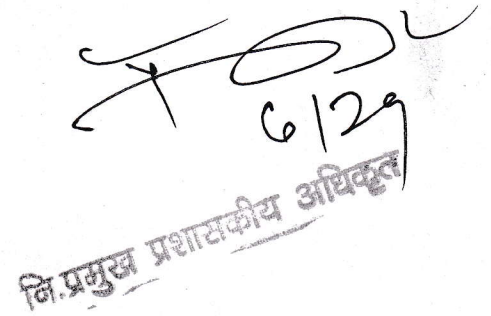 6/29
नि.प्रमुख प्रशासकीय अधिकृत